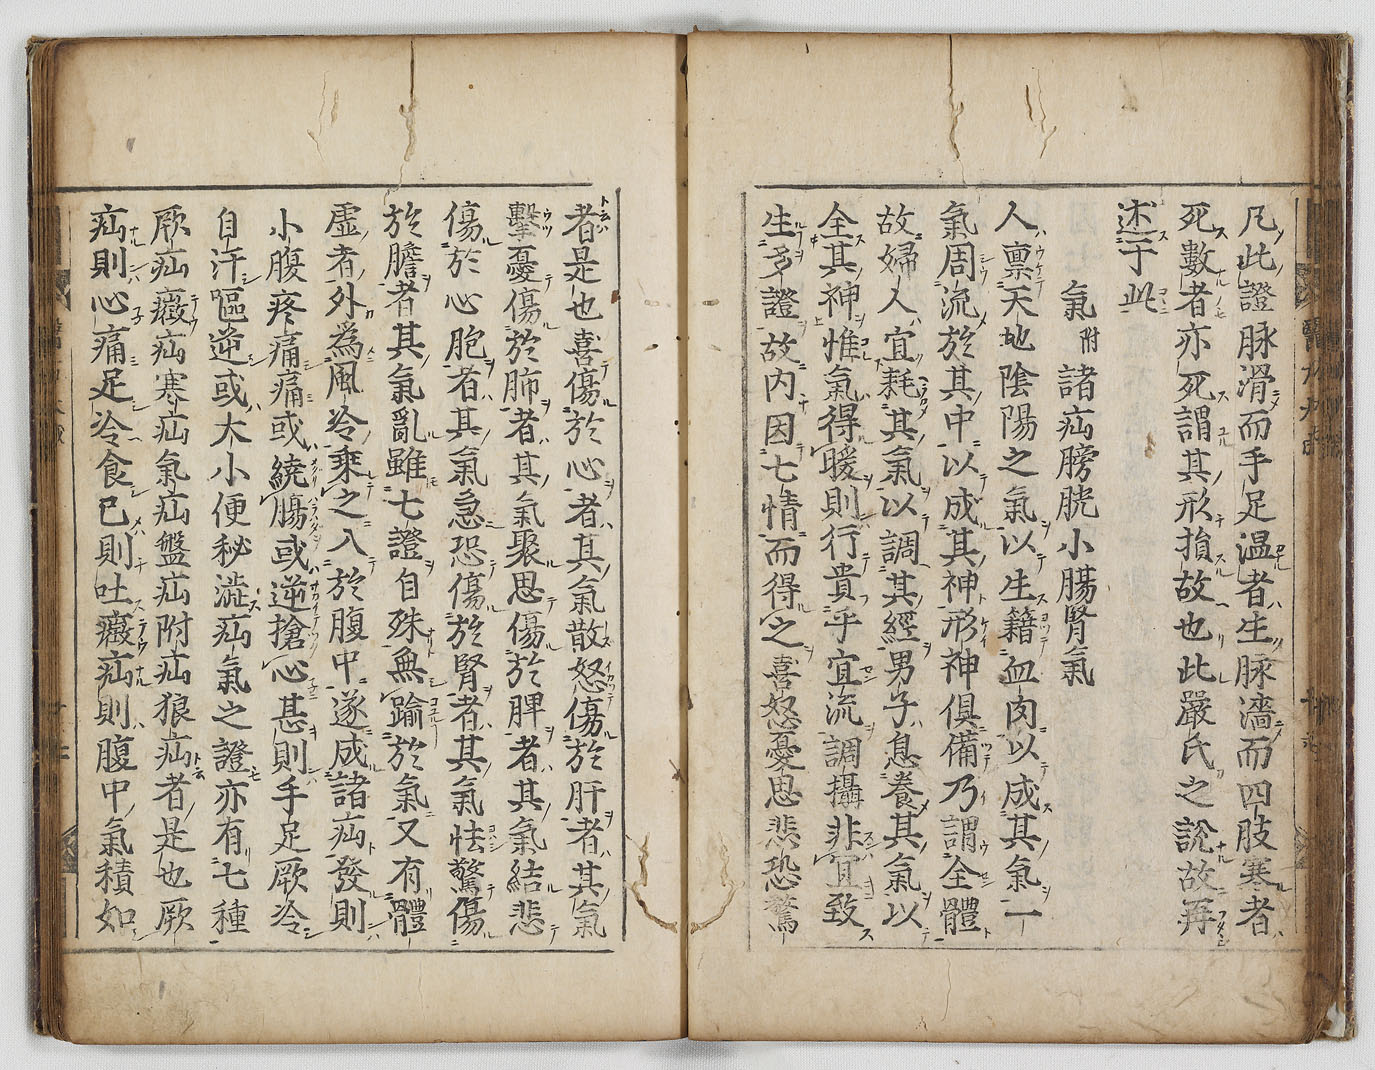 凡此證脉滑而手足温者生脉濇而四肢寒者
死數者亦死謂其形損故也此嚴氏之說故再
述于此
氣附諸疝膀胱小腸腎氣
人禀天地陰陽之氣以生籍血肉以成其氣一
氣周流於其中以成其神形神俱備乃謂全體
故婦人宜耗其氣以調其經男子息養其氣以
全其神惟氣得暖則行貴乎宜流調攝非宜致
生多證故内因七情而得之喜怒憂思悲恐驚
者是也喜傷於心者其氣散怒傷於肝者其氣
擊憂傷於肺者其氣聚思傷於脾者其氣結悲
傷於心胞者其氣急恐傷於腎者其氣怯驚傷
於膽者其氣亂雖七證自殊無踰於氣又有體
虚者外爲風冷乘之入於腹中遂成諸疝發則
小腹疼痛痛或繞腸或逆搶心甚則手足厥冷
自汗嘔逆或大小便秘澁疝氣之證亦有七種
厥疝癥疝寒疝氣疝盤疝附疝狼疝者是也厥
疝則心痛足冷食已則吐癥疝則腹中氣積如